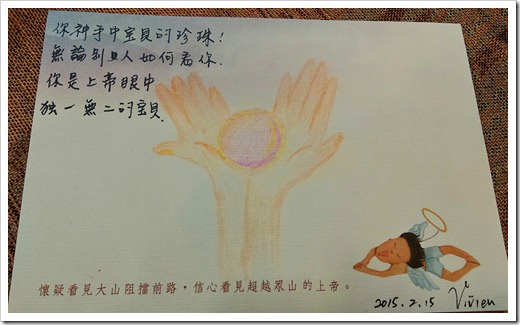 你神手中宝貝的珍珠!
無論别人如何看你.
你是上帝眼中
独一無二的宝貝.
懷疑看見大山阻擋前路,信心看見超越眾山的上帝。
2015.2.15 Vivien